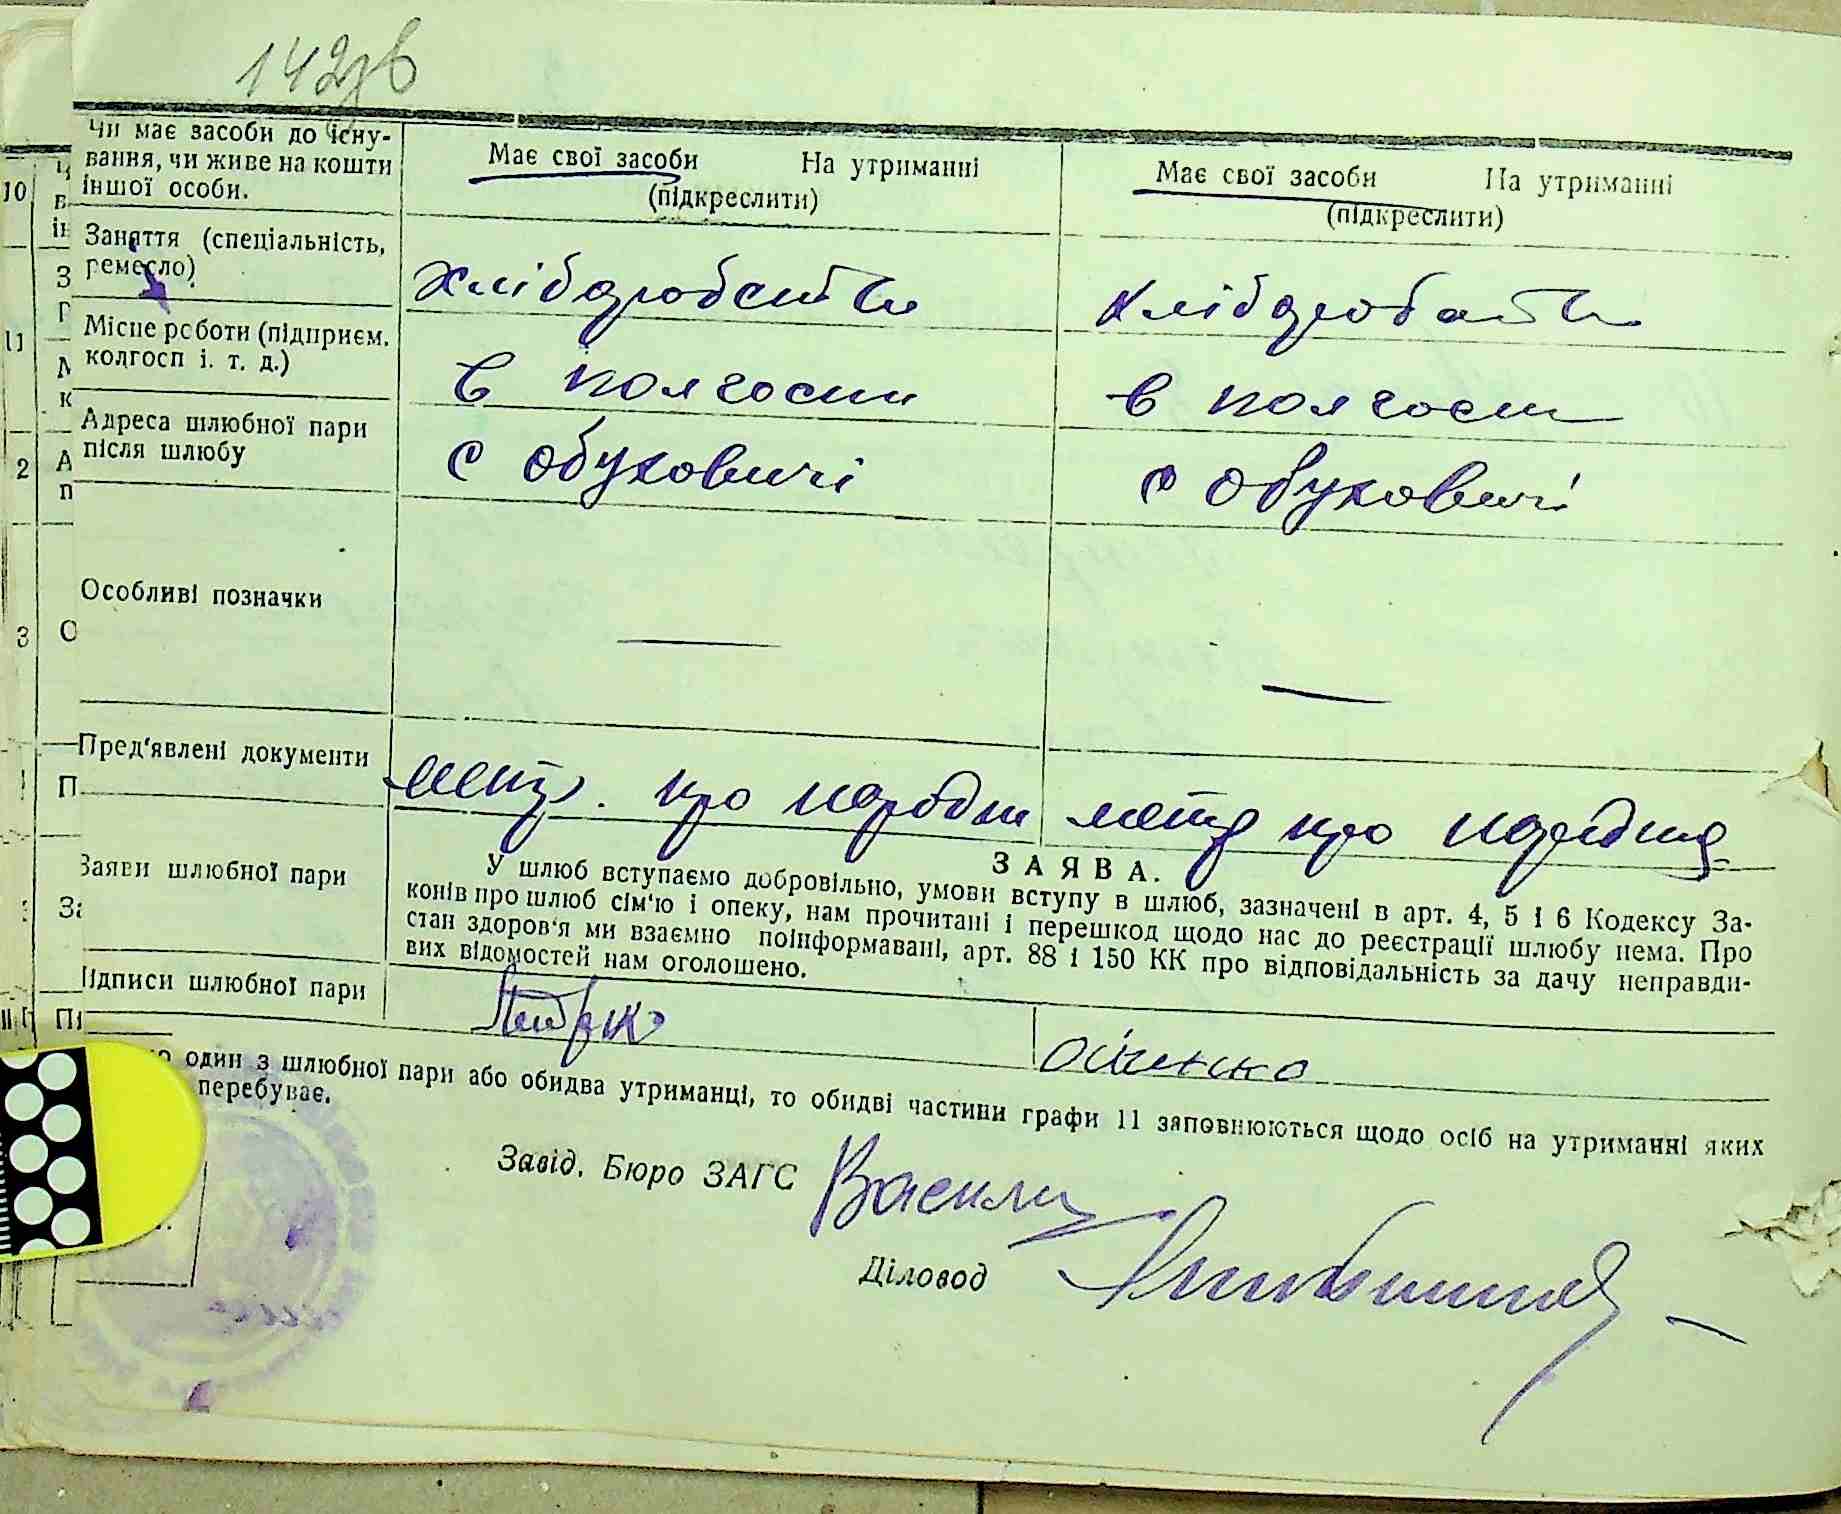 142зв
Чи має засоби до існу-
вання, чи живе на кошти
іншої особи.
Має свої засоби На утриманні
(підкреслити)
Має свої засоби На утриманні
(підкреслити)
10
Заняття (спеціальність,
ремесло)
хлібороб
хлібороб
11
Місце роботи (підприєм.
колгосп і. т. д.)
в колгоспі
в колгоспі
2
Адреса шлюбної пари
після шлюбу
с Обуховичі
с Обуховичі
3
Особливі позначки
—
—
Пред'явлені документи
про народж
про народж
Заяви шлюбної пари
ЗАЯВА.
У шлюб вступаємо добровільно, умови вступу в шлюб, зазначені в арт. 4, 5 і 6 Кодексу За-
конів про шлюб сім'ю і опеку, нам прочитані і перешкод щодо нас до реєстрації шлюбу нема. Про
стан здоров'я ми взаємно поінформавані, арт. 88 і 150 КК про відповідальність за дачу неправди-
вих відомостей нам оголошено.
Підписи шлюбної пари
один з шлюбної пари або обидва утриманці, то обидві частини графи 11 заповнюються щодо осіб на утриманні яких
перебуває.
Завід. Бюро ЗАГС
Діловод